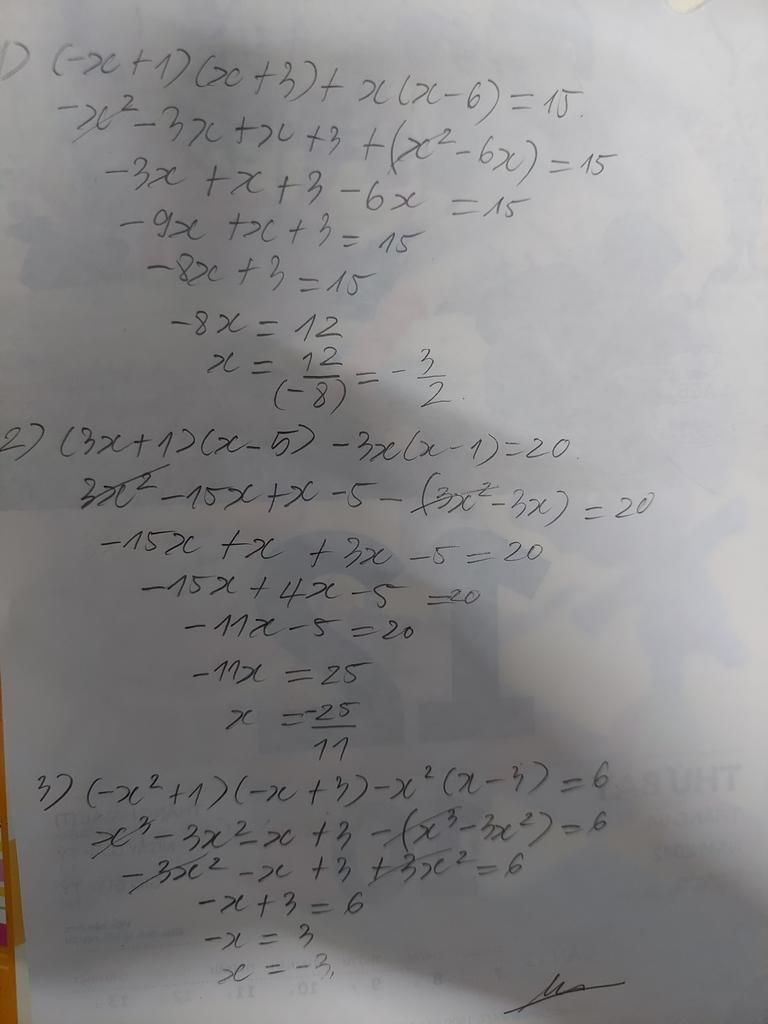 1) (-x+1)(x+3)+x(x-6)=15.
-x²-3x+x+3+(x²-6x)=15
-3x+x+3-6x=15
-9x+x+3=15
-8x+3=15
-8x=12
x=12/(-8)=-3/2.
2) (3x+1)(x-5)-3x(x-1)=20.
3x²-15x+x-5-(3x²-3x)=20
-15x+x+3x-5=20
-15x+4x-5=20
-11x-5=20
-11x=25
x=-25/11
3) (-x²+1)(-x+3)-x²(x-3)=6
x³-3x²-x+3-(x³-3x²)=6
-3x²-x+3+3x²=6
-x+3=6
-x=3
x=-3.
12
THỨ BẢY